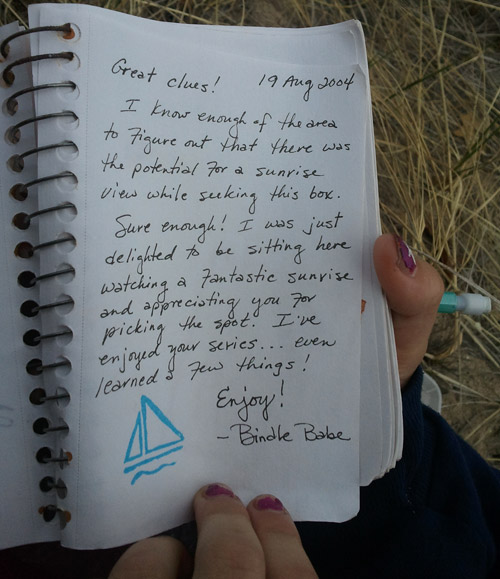 Great clues! 19 Aug 2004
I know enough of the area
to figure out that there was
the potential for a sunrise
view while seeking this box.
Sure enough! I was just
delighted to be sitting here
watching a fantastic sunrise
and appreciating you for
picking the spot. I've
enjoyed your series... even
learned a few things!
Enjoy!
- Bindle Babe